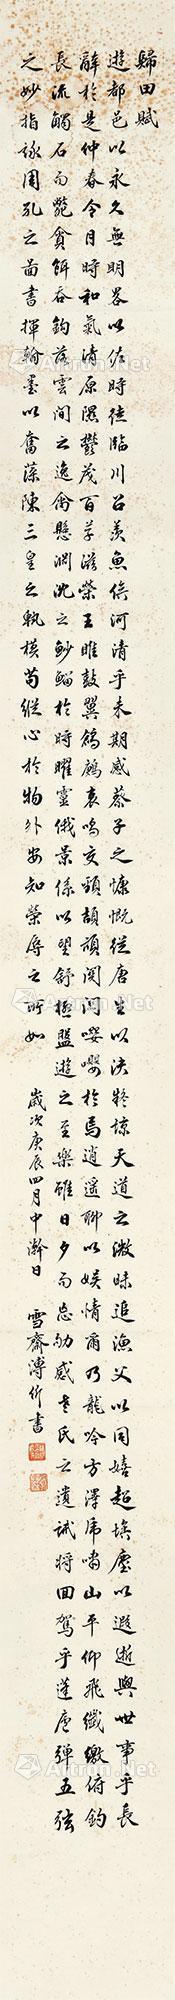 歸田賦
遊都邑以永久無明略以佐時徒臨川以羨魚俟河清乎未期感蔡子之慷慨從唐生以決疑諒天道之微昧追漁父以同嬉超埃塵以遐逝與世事乎長
辭於是仲春令月時和氣清原隰鬱茂百草滋榮王雎鼓翼鶬鶊哀鳴交頸頡頏關關嚶嚶於焉逍遙聊以娛情爾乃龍吟方澤虎嘯山平仰飛纖繳俯釣
長流觸石而斃貪餌吞鉤落雲間之逸禽懸淵沈之魦鰡於時曜靈俄景係以望舒極盤遊之至樂雖日夕而忘劬感老氏之遺誡將回駕乎蓬廬彈五弦
之妙指詠周孔之圖書揮翰墨以奮藻陳三皇之軌模苟縱心於物外安知榮辱之所如
歲次庚辰四月中澣日 雪齋溥伒書
Artron.Net